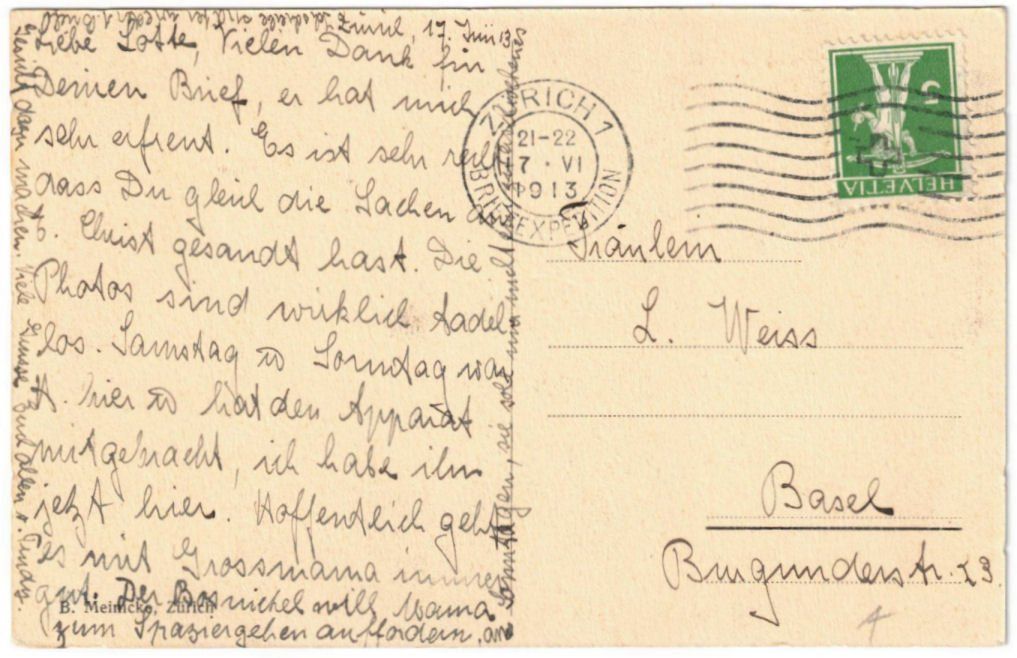 Zürich, 17. Juni 13.
Liebe Lotte, Vielen Dank für
Deinen Brief, er hat mich
sehr erfreut. Es ist sehr
dass Du gleich die Sachen
Christ gesandt hast. Die
Photos sind wirklich tadel
los. Samstag u Sonntag war
A. hier u hat den Apparat
mitgebracht, ich habe ihn
jetzt hier. Hoffentlich geht
es mit Grossmama immer
gut. Der will Mama
zum Spaziergehen auffordern, am
Sonntagen, sie soll nur nicht
dazu machen. Viele Grüsse Euch allen v. Trudy.
B. Meinicke, Zürich
ZÜRICH 1
21-22
17 · VI
1913
BRIEFEXPEDITION
5
HELVETIA
Fräulein
L. Weiss
Basel
Burgunderstr. 23.